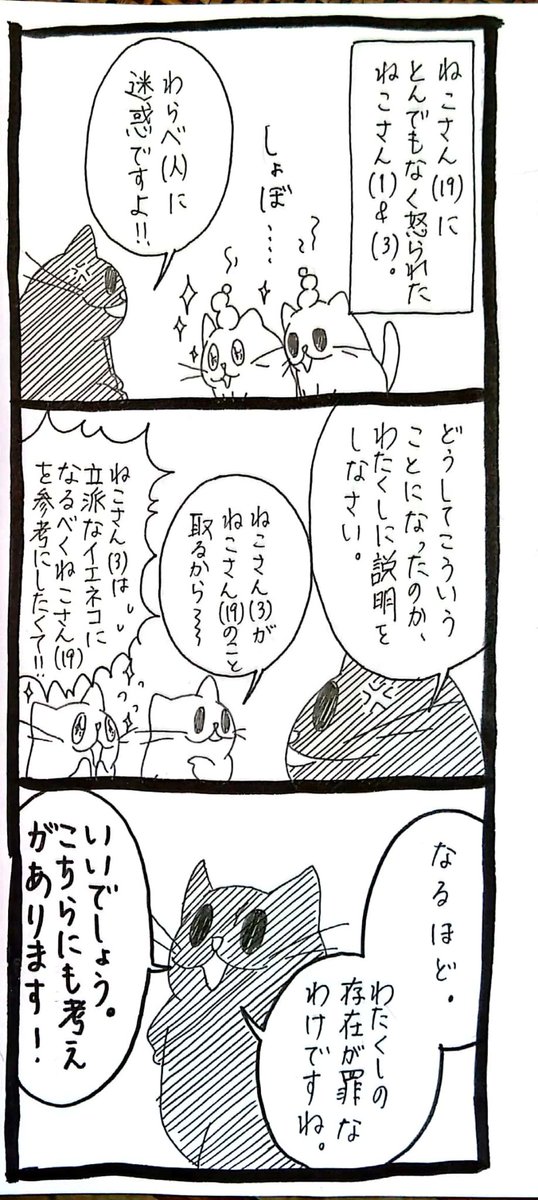 ねこさん(19)に
とんでもなく怒られた
ねこさん(1&3)。
しょぼ……
わらべ(人)に
迷惑ですよ!!
どうしてこういう
ことになったのか、
わたくしに説明を
しなさい。
ねこさん(3)が
ねこさん(19)のこと
取るから〜〜
ねこさん(3)は
立派なイエネコに
なるべくねこさん(19)
を参考にしたくて!!
なるほど。
わたくしの
存在が罪な
わけですね。
いいでしょう。
こちらにも考え
があります!